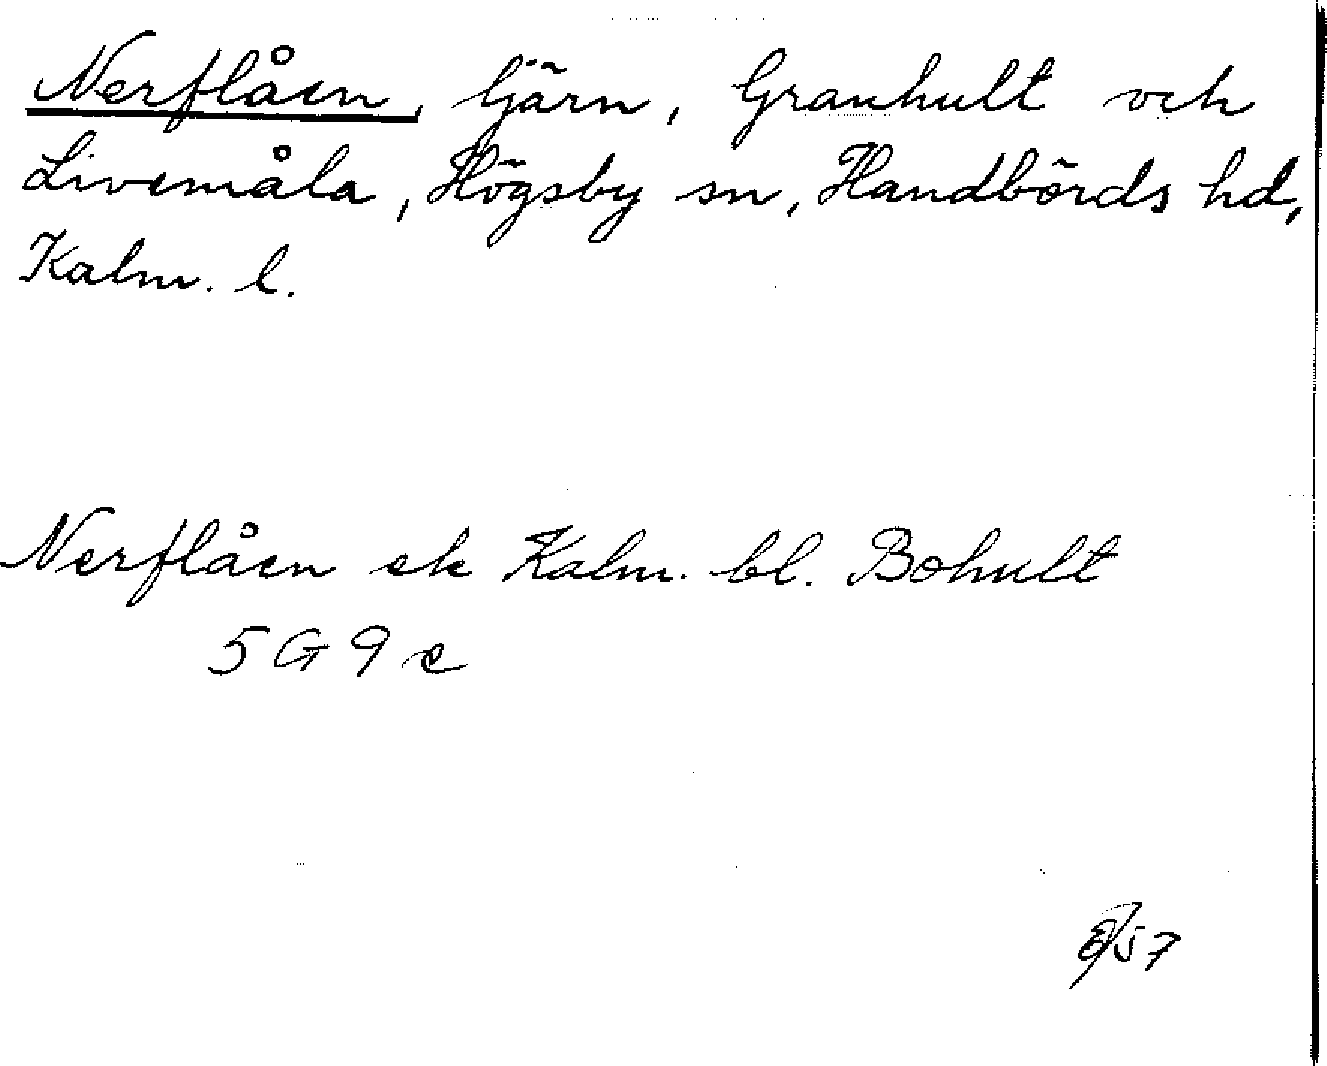 Nerflåen, tjärn, Granhult och
Livemåla, Högsby sn, Handbörds hd,
Kalm. l.
Nerflåen ek Kalm. bl. Bohult
5 G 9 e